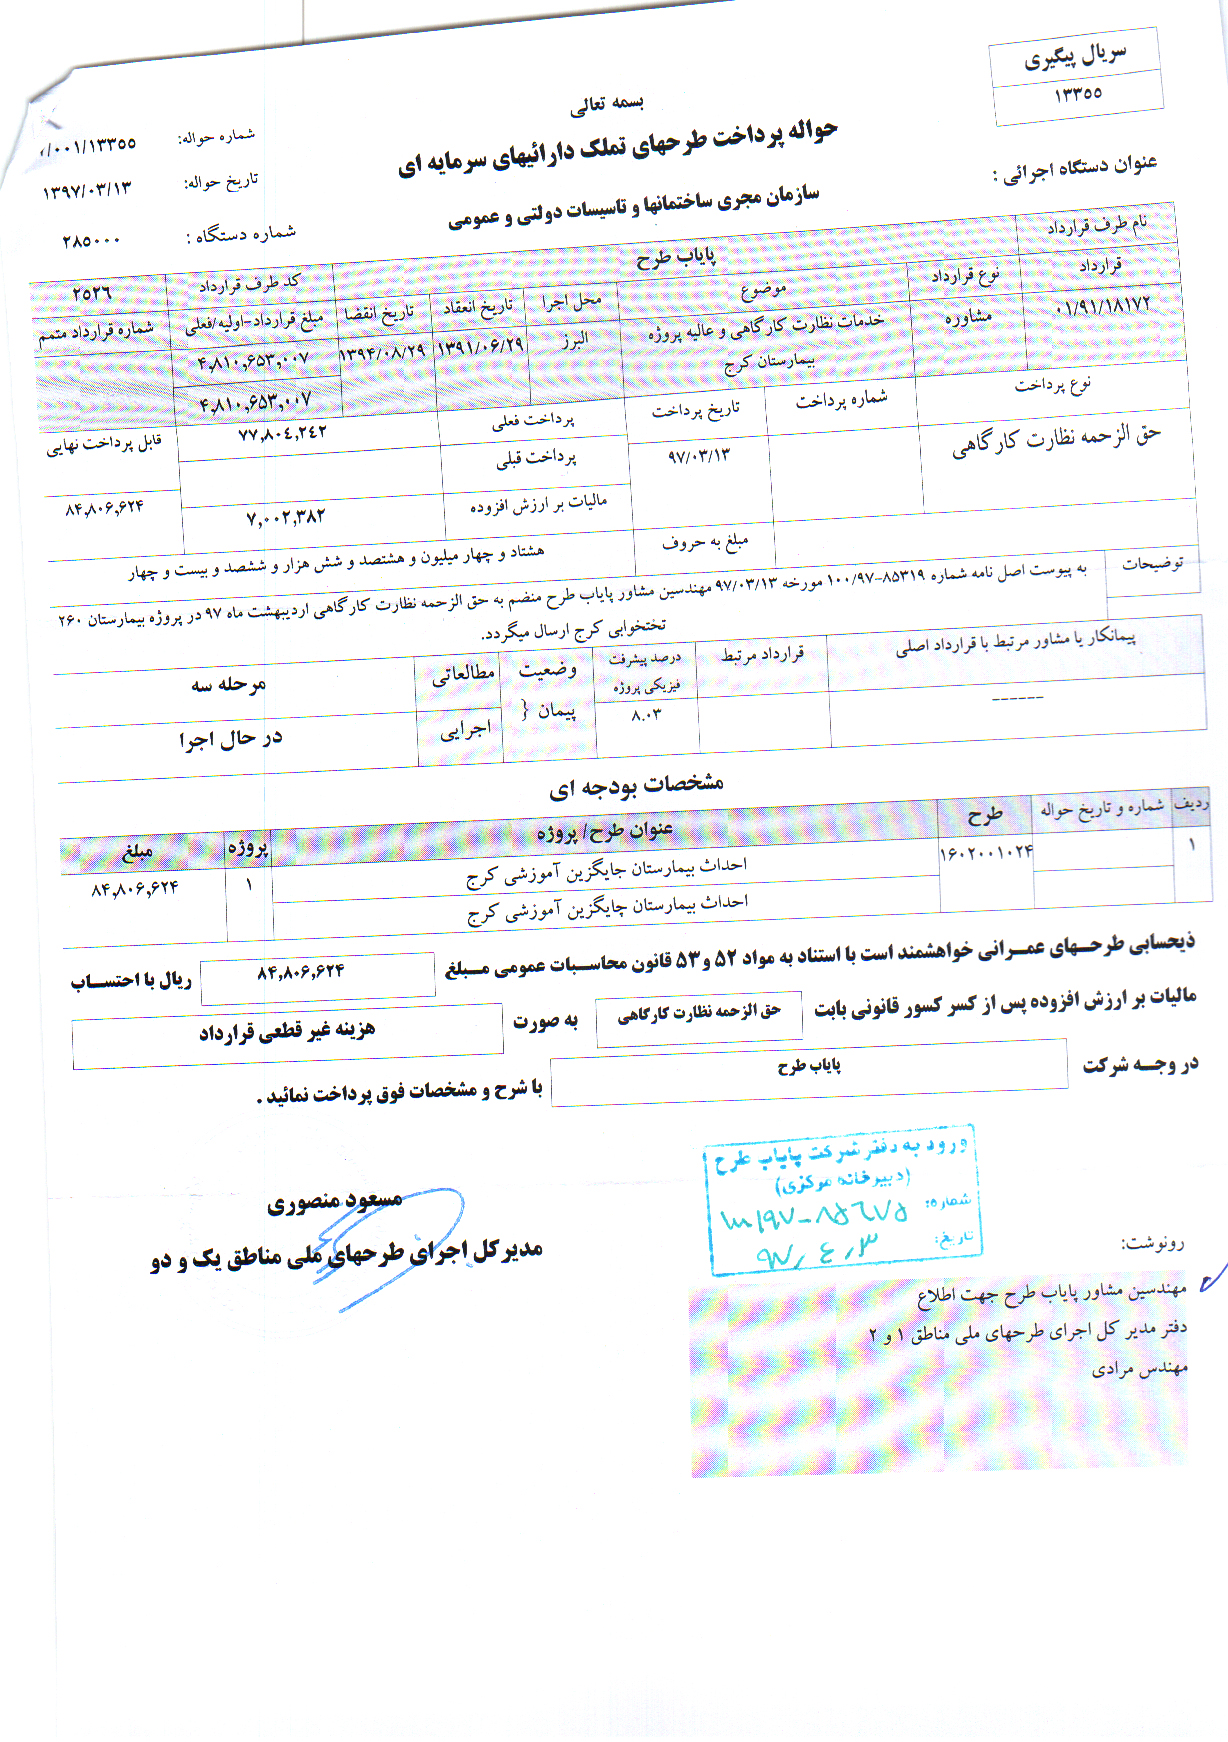 سریال پیگیری
۱۳۳۵۵
بسمه تعالی
حواله پرداخت طرحهای تملک دارائیهای سرمایه ای
شماره حواله: ۰۰۱/۱۳۳۵۵/
تاریخ حواله: ۱۳۹۷/۰۳/۱۳
عنوان دستگاه اجرائی :
سازمان مجری ساختمانها و تاسیسات دولتی و عمومی
شماره دستگاه : ۲۸۵۰۰۰
نام طرف قرارداد پایاب طرح کد طرف قرارداد ۲۵۲۶
قرارداد نوع قرارداد موضوع محل اجرا تاریخ انعقاد تاریخ انقضا مبلغ قرارداد-اولیه/فعلی شماره قرارداد متمم
۰۱/۹۱/۱۸۱۷۲ مشاوره خدمات نظارت کارگاهی و عالیه پروژه البرز ۱۳۹۱/۰۶/۲۹ ۱۳۹۴/۰۸/۲۹ ۴,۸۱۰,۶۵۳,۰۰۷
بیمارستان کرج ۴,۸۱۰,۶۵۳,۰۰۷
نوع پرداخت شماره پرداخت تاریخ پرداخت پرداخت فعلی ۷۷,۸۰۴,۲۴۲ قابل پرداخت نهایی
حق الزحمه نظارت کارگاهی ۹۷/۰۳/۱۳ پرداخت قبلی
مالیات بر ارزش افزوده ۷,۰۰۲,۳۸۲ ۸۴,۸۰۶,۶۲۴
مبلغ به حروف هشتاد و چهار میلیون و هشتصد و شش هزار و ششصد و بیست و چهار
توضیحات به پیوست اصل نامه شماره ۸۵۳۱۹-۱۰۰/۹۷ مورخه ۹۷/۰۳/۱۳ مهندسین مشاور پایاب طرح منضم به حق الزحمه نظارت کارگاهی اردیبهشت ماه ۹۷ در پروژه بیمارستان ۲۶۰
تختخوابی کرج ارسال میگردد.
پیمانکار یا مشاور مرتبط با قرارداد اصلی قرارداد مرتبط درصد پیشرفت فیزیکی پروژه وضعیت پیمان { مطالعاتی مرحله سه
------ ۸.۰۳ اجرایی در حال اجرا
مشخصات بودجه ای
ردیف شماره و تاریخ حواله طرح عنوان طرح/ پروژه پروژه مبلغ
۱ ۱۶۰۲۰۰۱۰۲۴ احداث بیمارستان جایگزین آموزشی کرج ۱ ۸۴,۸۰۶,۶۲۴
احداث بیمارستان جایگزین آموزشی کرج
ذیحسابی طرحهای عمرانی خواهشمند است با استناد به مواد ۵۲ و ۵۳ قانون محاسبات عمومی مبلغ ۸۴,۸۰۶,۶۲۴ ریال با احتساب
مالیات بر ارزش افزوده پس از کسر کسور قانونی بابت حق الزحمه نظارت کارگاهی به صورت هزینه غیر قطعی قرارداد
در وجه شرکت پایاب طرح با شرح و مشخصات فوق پرداخت نمائید .
ورود به دفتر شرکت پایاب طرح
(دبیرخانه مرکزی)
شماره:
تاریخ: ۹۷/۴/۳
مسعود منصوری
مدیر کل اجرای طرحهای ملی مناطق یک و دو
رونوشت:
مهندسین مشاور پایاب طرح جهت اطلاع
دفتر مدیر کل اجرای طرحهای ملی مناطق ۱ و ۲
مهندس مرادی